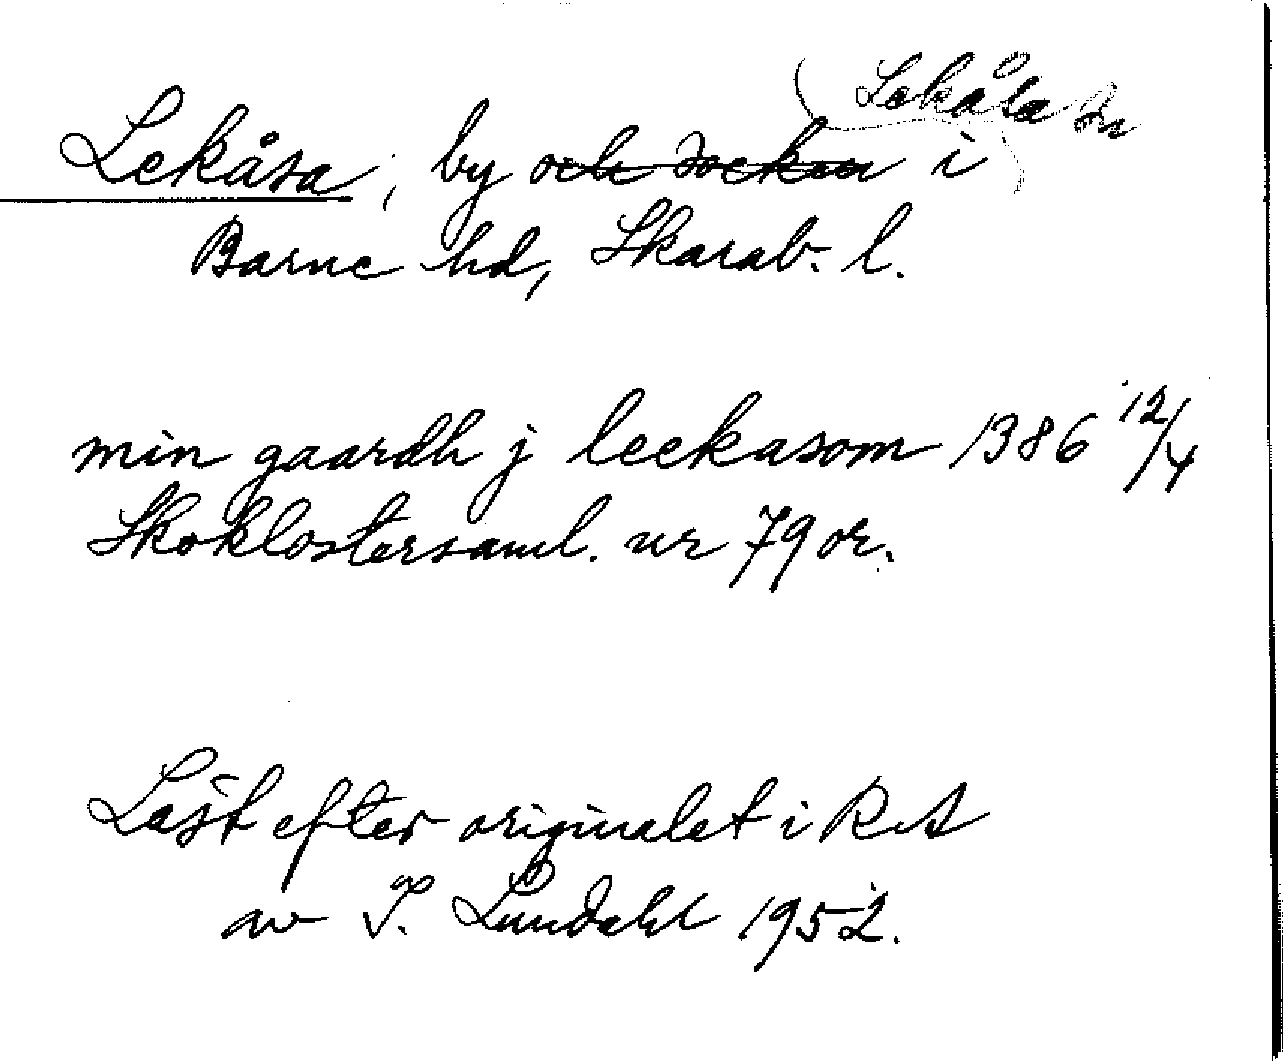 Lekåsa sn
Lekåsa, by och socken i
Barne hd, Skarab. l.
min gaardh j leekasom 1386 12/4
Skoklostersaml. nr 79 or.
Läst efter originalet i RA
av I. Lundahl 1952.